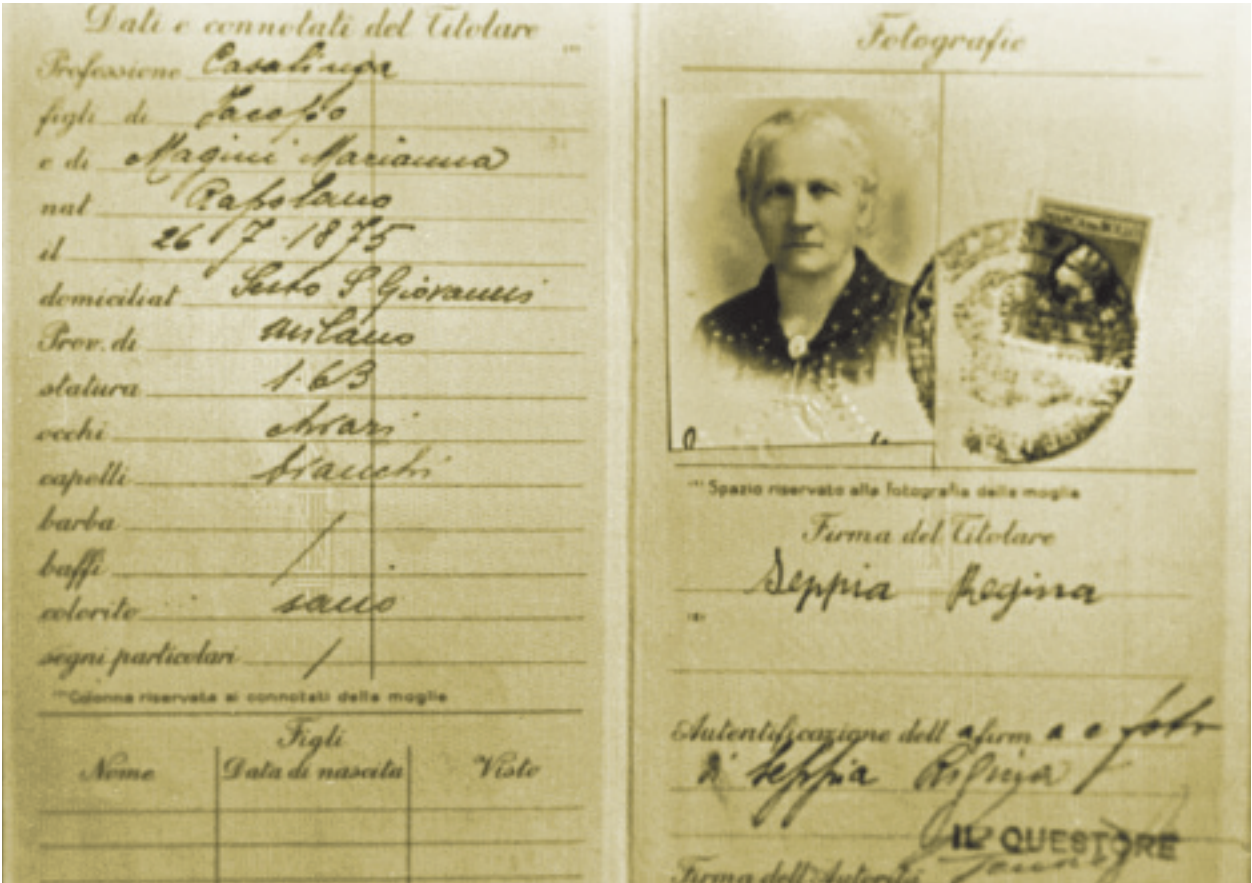 Dati e connotati del Titolare
Professione Casalinga
figli di Jacopo
e di Magini Marianna
nat Rapolano
il 26 7-1875
domiciliat Sesto S Giovanni
Prov. di Milano
statura 1.63
occhi chiari
capelli bianchi
barba /
baffi
colorito sano
segni particolari /
Colonna riservata ai connotati della moglie
Figli
Nome Data di nascita Visto
Fotografie
Spazio riservato alla fotografia della moglie
Firma del Titolare
Seppia Regina
Autentificazione dell a firm a e foto
di Seppia Regina
IL QUESTORE
Firma dell'Autorità